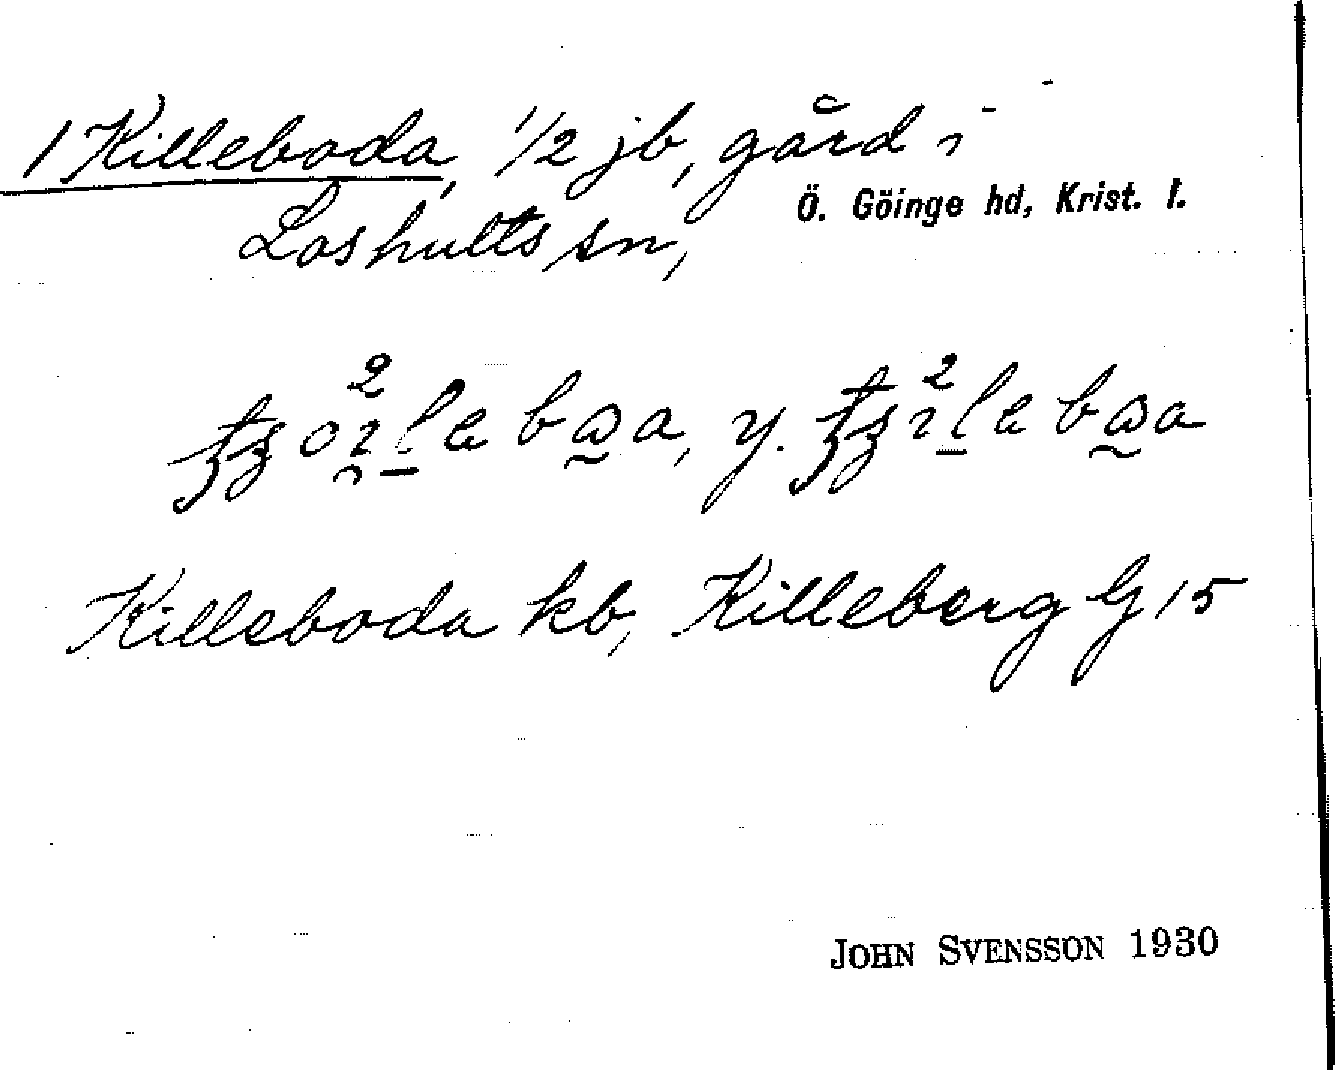 1 Killeboda, 1/2 jb, gård i
Loshults sn, Ö. Göinge hd, Krist. l.
Killeboda kb, Killeberg G 15
JOHN SVENSSON 1930